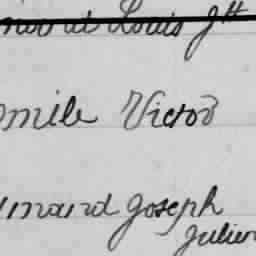 Louis J
mile Victor
Joseph
Julien